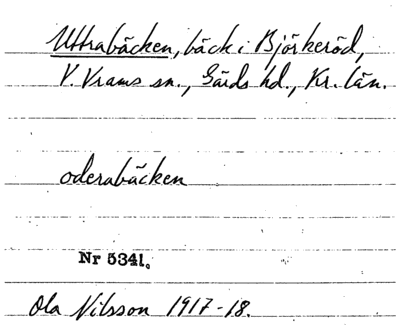 Uttrabäcken, bäck i Björkeröd,
V. Vrams sn., Gärds hd., Kr. län.
oderabäcken
Nr 5341.
Ola Nilsson 1917-18.